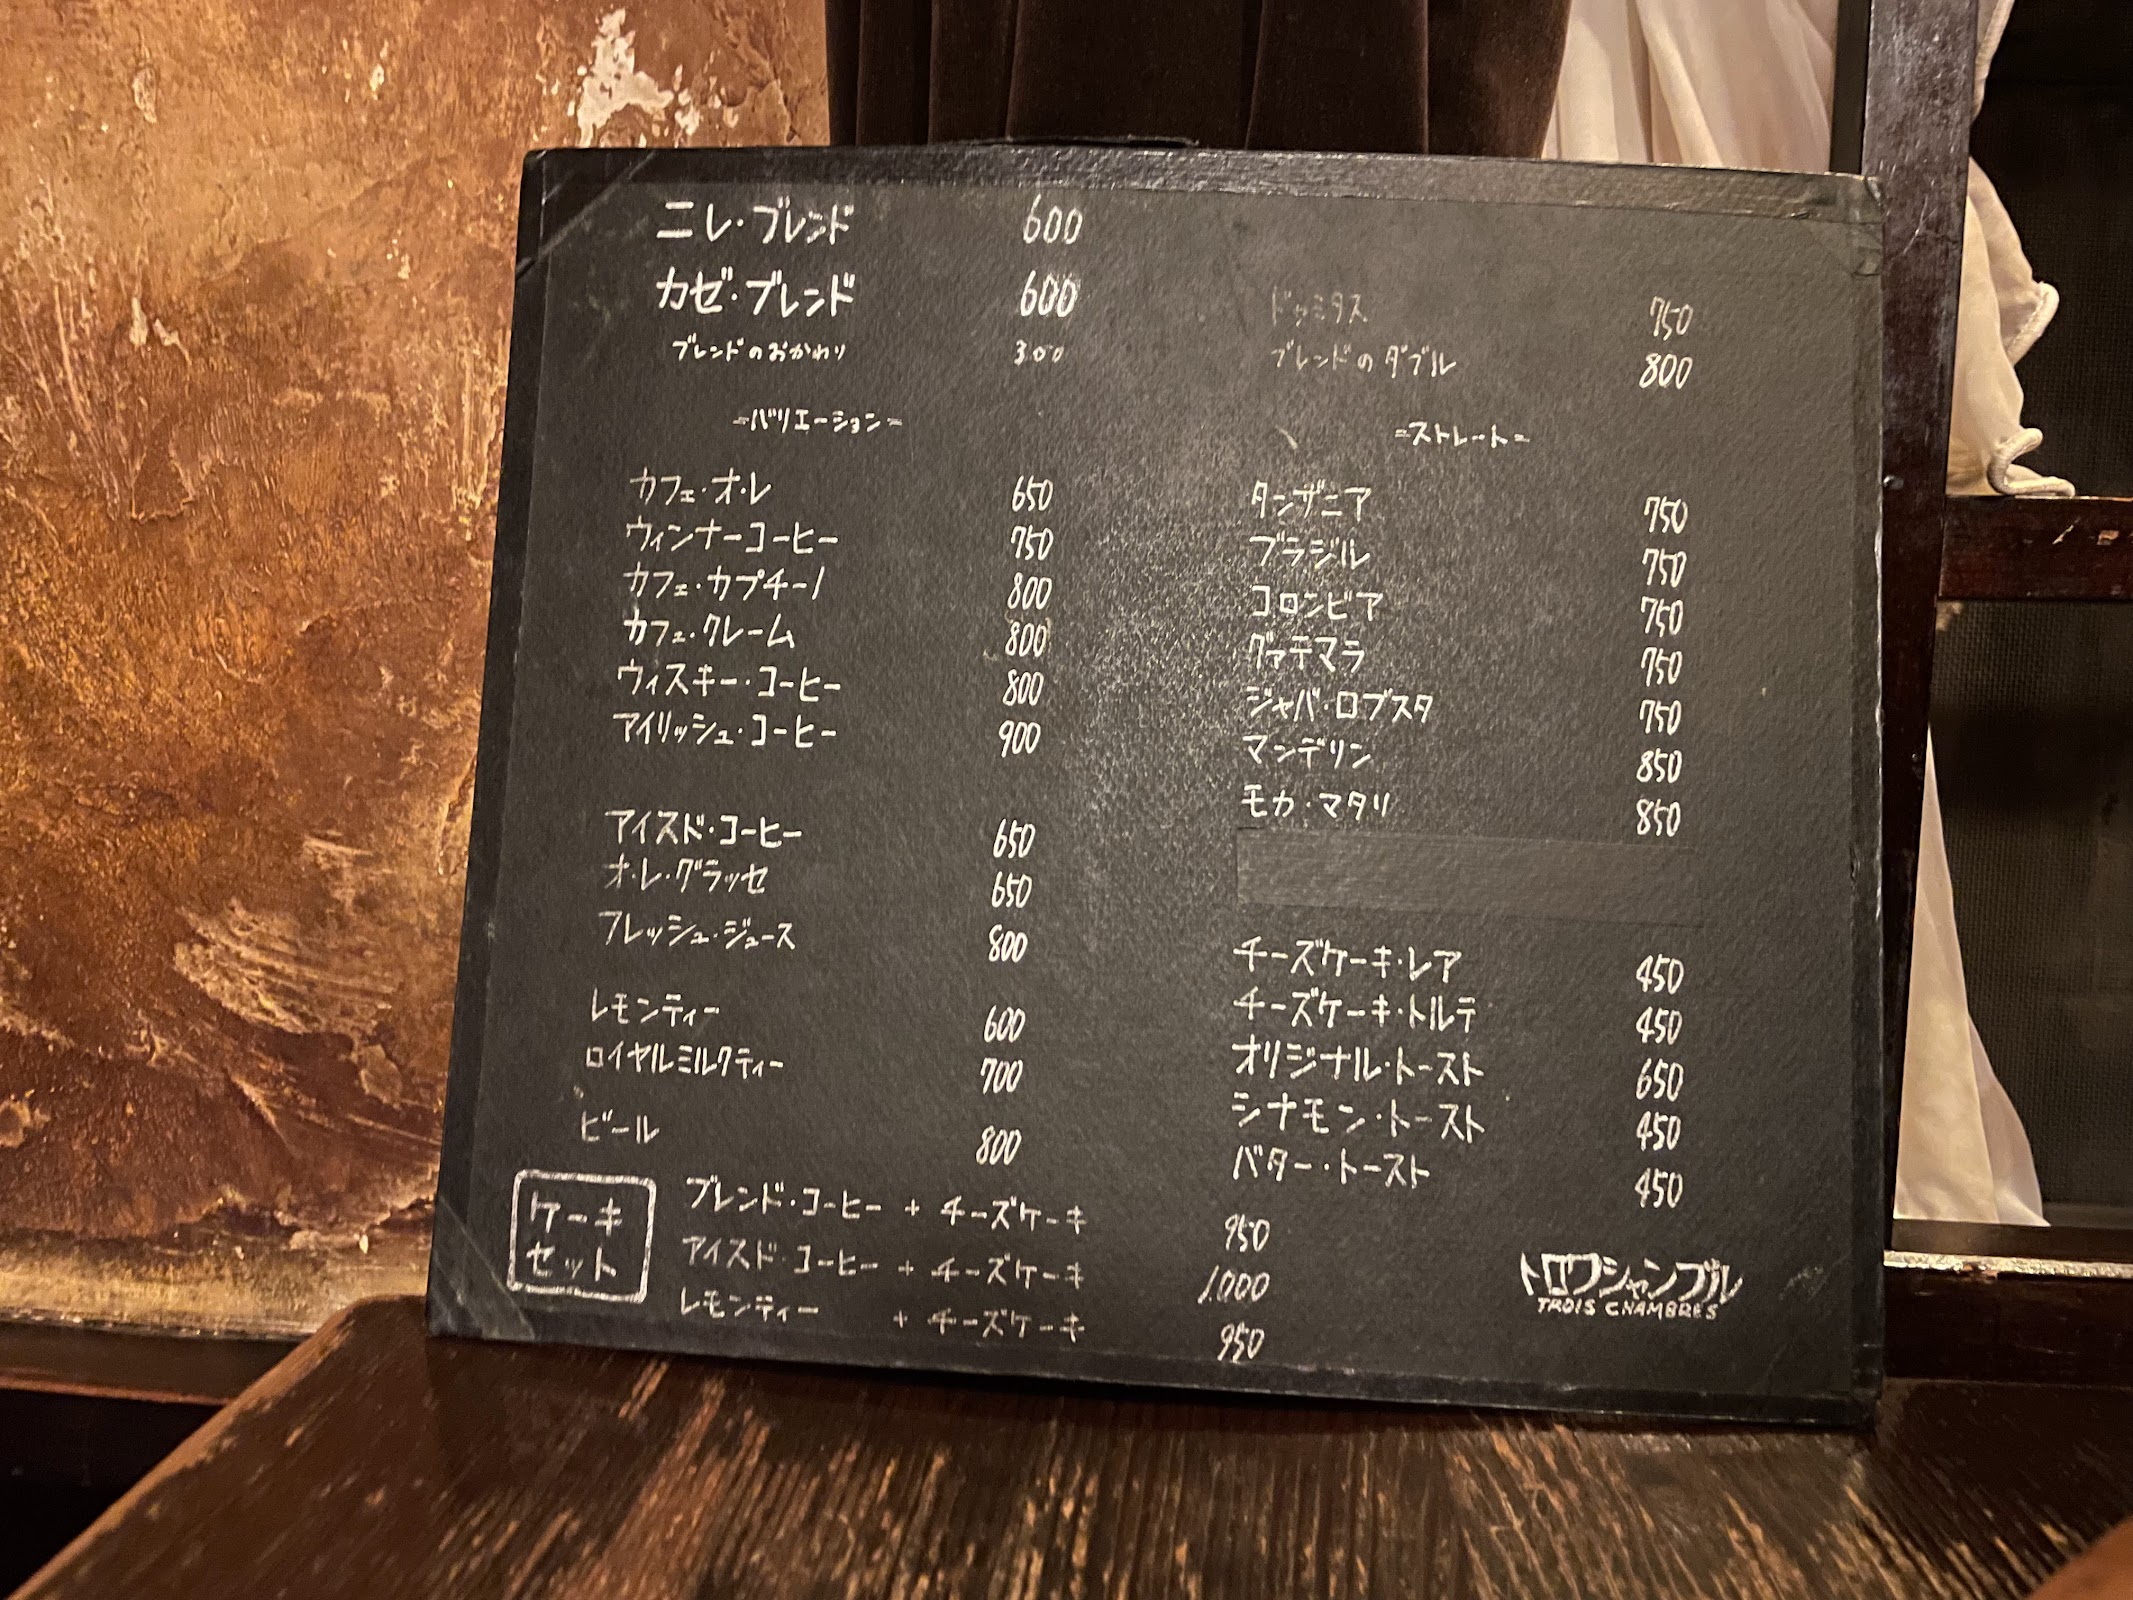 ニレ・ブレンド 600
カゼ・ブレンド 600
ブレンドのおかわり 300
=バリエーション=
カフェ・オ・レ 650
ウィンナーコーヒー 750
カフェ・カプチーノ 800
カフェ・クレーム 800
ウィスキー・コーヒー 800
アイリッシュ・コーヒー 900
アイスド・コーヒー 650
オ・レ・グラッセ 650
フレッシュ・ジュース 800
レモンティー 600
ロイヤルミルクティー 700
ビール 800
ドゥミタス 750
ブレンドのダブル 800
=ストレート=
タンザニア 750
ブラジル 750
コロンビア 750
グァテマラ 750
ジャバ・ロブスタ 750
マンデリン 850
モカ・マタリ 850
チーズケーキ・レア 450
チーズケーキ・トルテ 450
オリジナル・トースト 650
シナモン・トースト 450
バター・トースト 450
ケーキ
セット
ブレンド・コーヒー + チーズケーキ 950
アイスド・コーヒー + チーズケーキ 1.000
レモンティー + チーズケーキ 950
トロワシャンブル
TROIS CHAMBRES